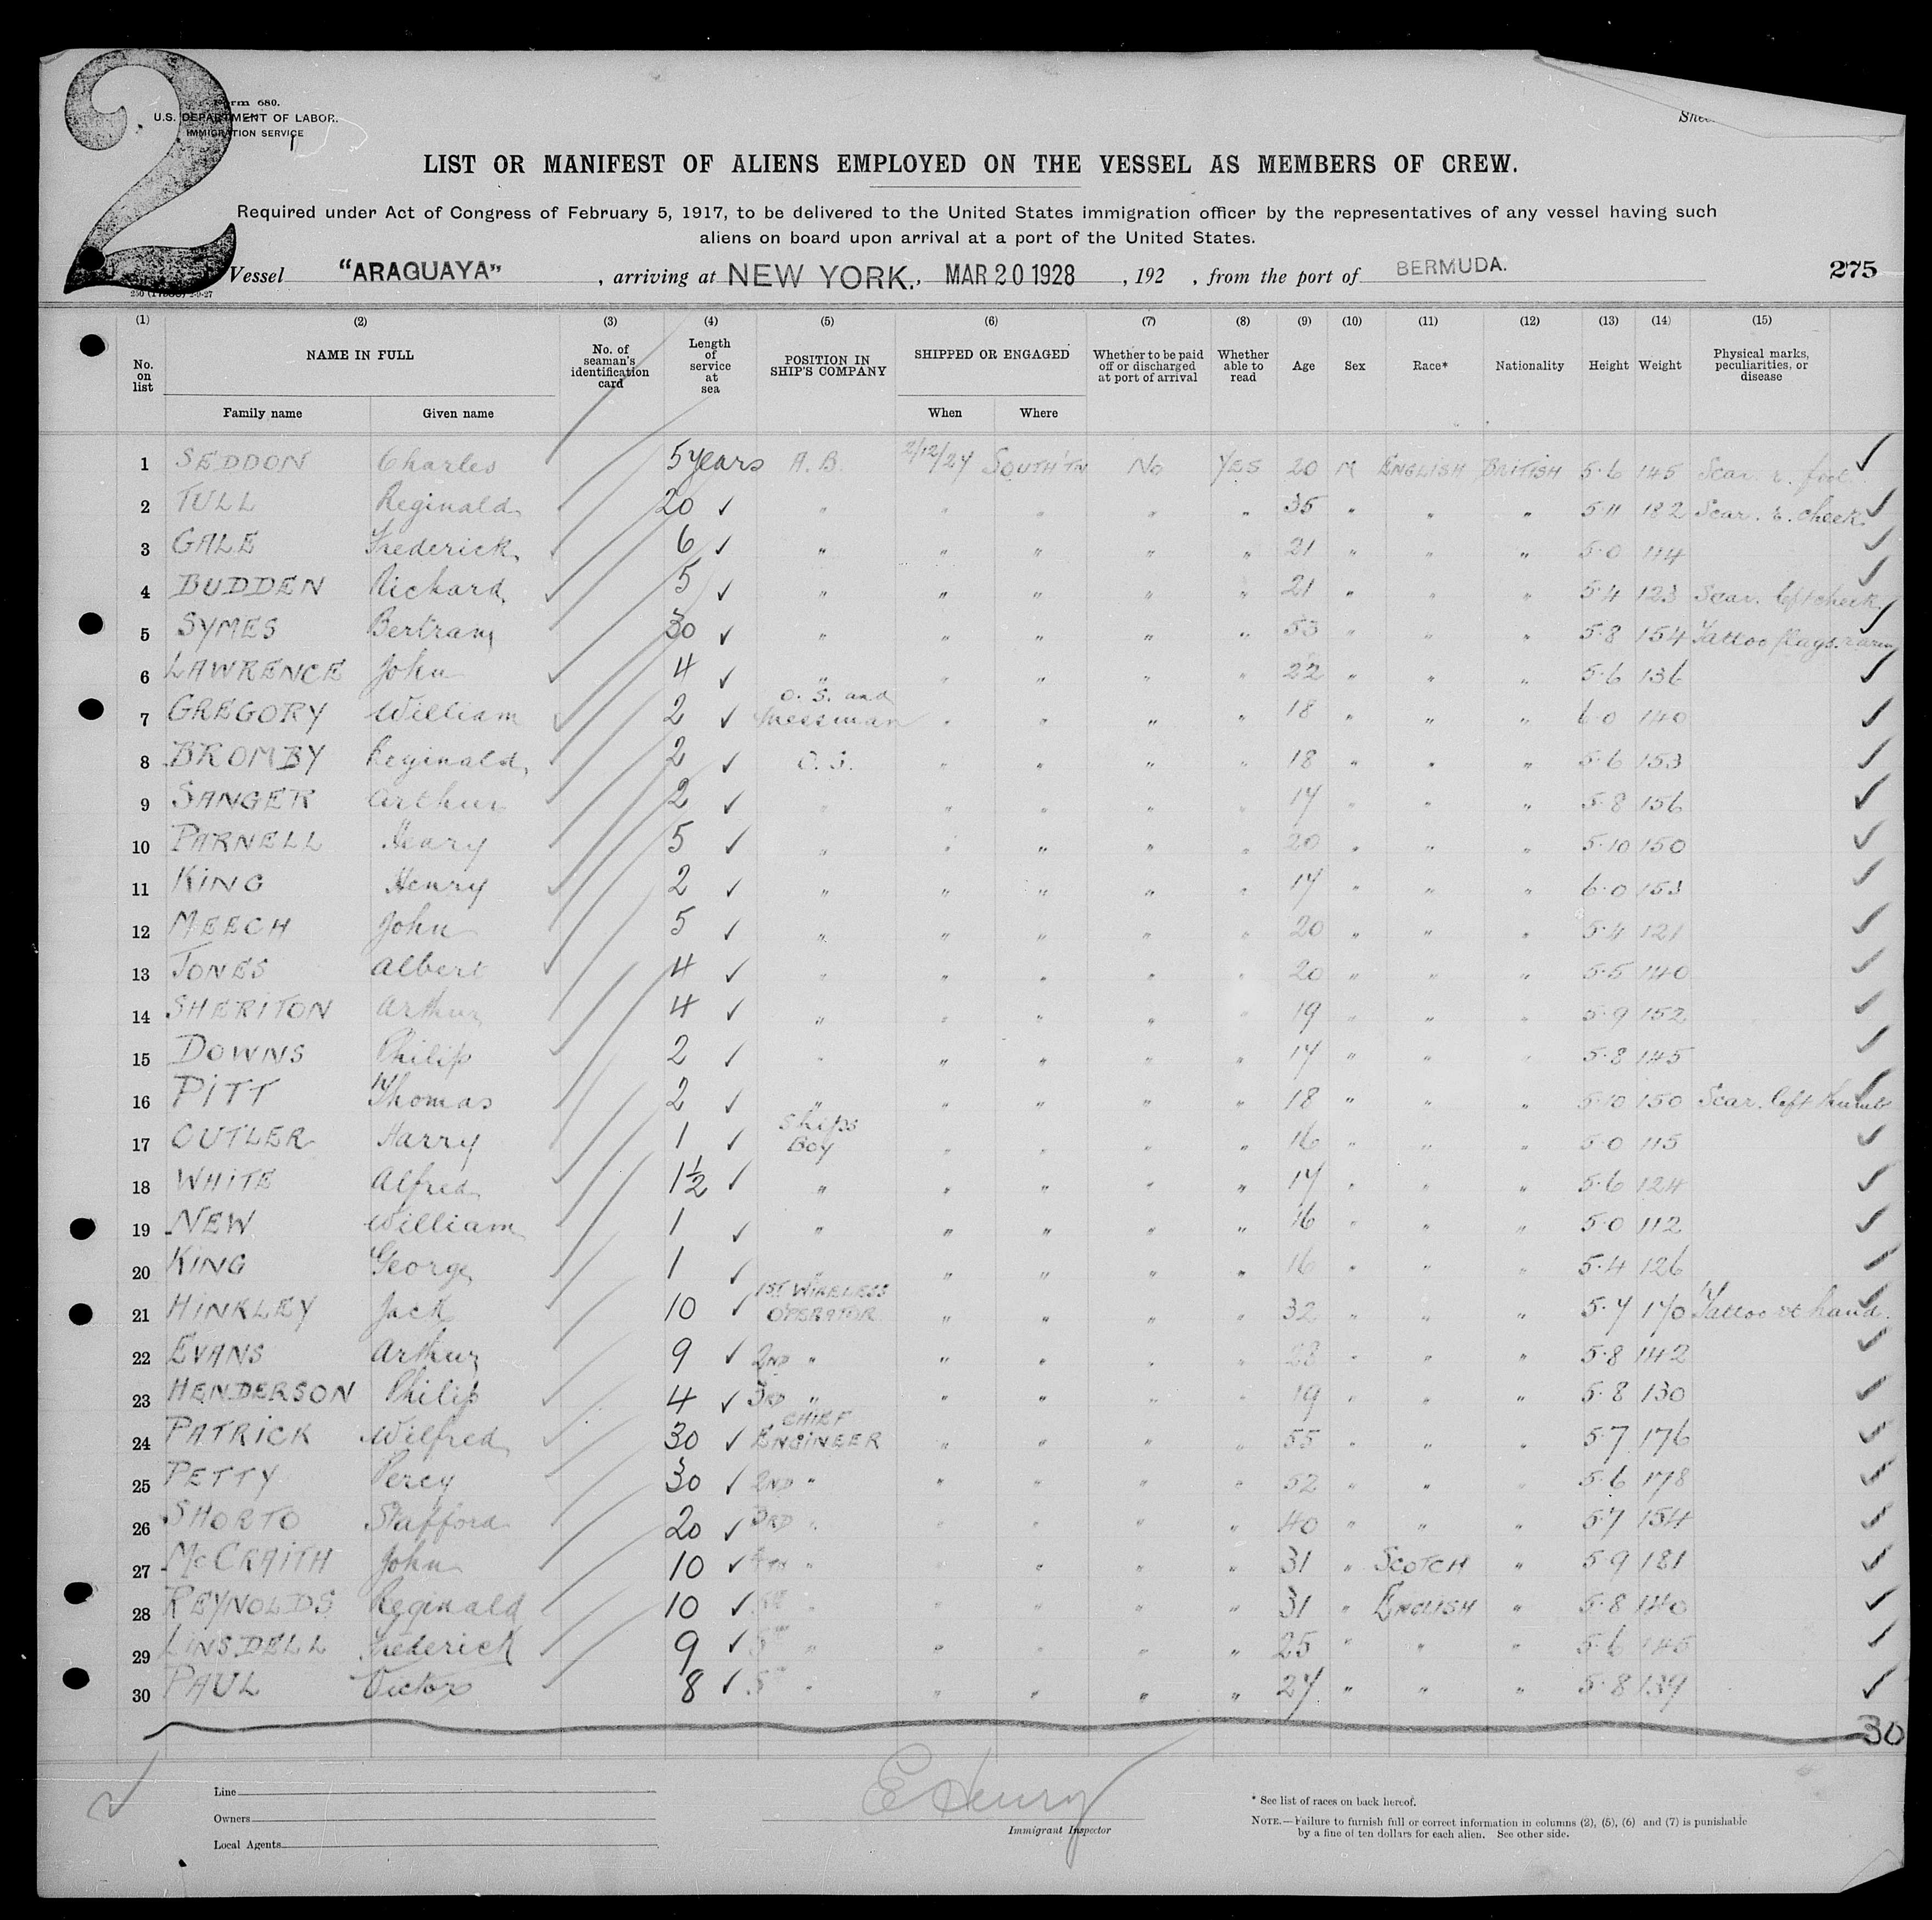 2
Form 680.
U.S. DEPARTMENT OF LABOR.
IMMIGRATION SERVICE
LIST OR MANIFEST OF ALIENS EMPLOYED ON THE VESSEL AS MEMBERS OF CREW.
Required under Act of Congress of February 5, 1917, to be delivered to the United States immigration officer by the representatives of any vessel having such
aliens on board upon arrival at a port of the United States.
Vessel "ARAGUAYA", arriving at NEW YORK., MAR 20 1928, 192 , from the port of BERMUDA. 275
(1) (2) (3) (4) (5) (6) (7) (8) (9) (10) (11) (12) (13) (14) (15)
No. on list NAME IN FULL No. of seaman's identification card Length of service at sea POSITION IN SHIP'S COMPANY SHIPPED OR ENGAGED Whether to be paid off or discharged at port of arrival Whether able to read Age Sex Race* Nationality Height Weight Physical marks, peculiarities, or disease
Family name Given name When Where
1 SEDDON Charles 5 years A.B. 2/12/27 SOUTH'TN No YES 20 M ENGLISH BRITISH 5.6 145 Scar. r. foot
2 TULL Reginald 20 ✓ " " " " " 35 " " " 5.11 182 Scar. r. cheek
3 GALE Frederick 6 ✓ " " " " " 21 " " " 5.0 114
4 BUDDEN Richard 5 ✓ " " " " " 21 " " " 5.4 123 Scar. left cheek
5 SYMES Bertram 30 ✓ " " " " " 53 " " " 5.8 154 Tattoo flags. r arm
6 LAWRENCE John 4 ✓ " " " " " 22 " " " 5.6 136
7 GREGORY William 2 ✓ O. S. and Messman " " " " 18 " " " 6.0 140
8 BROMBY Reginald 2 ✓ O.S. " " " " 18 " " " 5.6 153
9 SANGER Arthur 2 ✓ " " " " " 17 " " " 5.8 156
10 PARNELL Henry 5 ✓ " " " " " 20 " " " 5.10 150
11 KING Henry 2 ✓ " " " " " 17 " " " 6.0 153
12 MEECH John 5 ✓ " " " " " 20 " " " 5.4 121
13 JONES Albert 4 ✓ " " " " " 20 " " " 5.5 140
14 SHERITON Arthur 4 ✓ " " " " " 19 " " " 5.9 152
15 DOWNS Philip 2 ✓ " " " " " 17 " " " 5.8 145
16 PITT Thomas 2 ✓ " " " " " 18 " " " 5.10 150 Scar. left thumb
17 CUTLER Harry 1 ✓ Ships Boy " " " " 16 " " " 5.0 115
18 WHITE Alfred 1½ ✓ " " " " " 17 " " " 5.6 124
19 NEW William 1 ✓ " " " " " 16 " " " 5.0 112
20 KING George 1 ✓ " " " " " 16 " " " 5.4 126
21 HINKLEY Jack 10 ✓ 1ST WIRELESS OPERATOR " " " " 32 " " " 5.7 170 Tattoo rt hand.
22 EVANS Arthur 9 ✓ 2ND " " " " " 28 " " " 5.8 142
23 HENDERSON Philip 4 ✓ 3RD " " " " " 19 " " " 5.8 130
24 PATRICK Wilfred 30 ✓ CHIEF ENGINEER " " " " 55 " " " 5.7 176
25 PETTY Percy 30 ✓ 2ND " " " " " 52 " " " 5.6 178
26 SHORTO Stafford 20 ✓ 3RD " " " " " 40 " " " 5.7 154
27 McCRAITH John 10 ✓ 4TH " " " " " 31 " SCOTCH " 5.9 181
28 REYNOLDS Reginald 10 ✓ " " " " " 31 " ENGLISH " 5.8 140
29 LINSDELL Frederick 9 ✓ 5TH " " " " " 25 " " " 5.6 145
30 PAUL Victor 8 ✓ 5TH " " " " " 27 " " " 5.8 139
30
E Henry
Line
Owners
Local Agents
Immigrant Inspector
* See list of races on back hereof.
NOTE.—Failure to furnish full or correct information in columns (2), (5), (6) and (7) is punishable
by a fine of ten dollars for each alien. See other side.